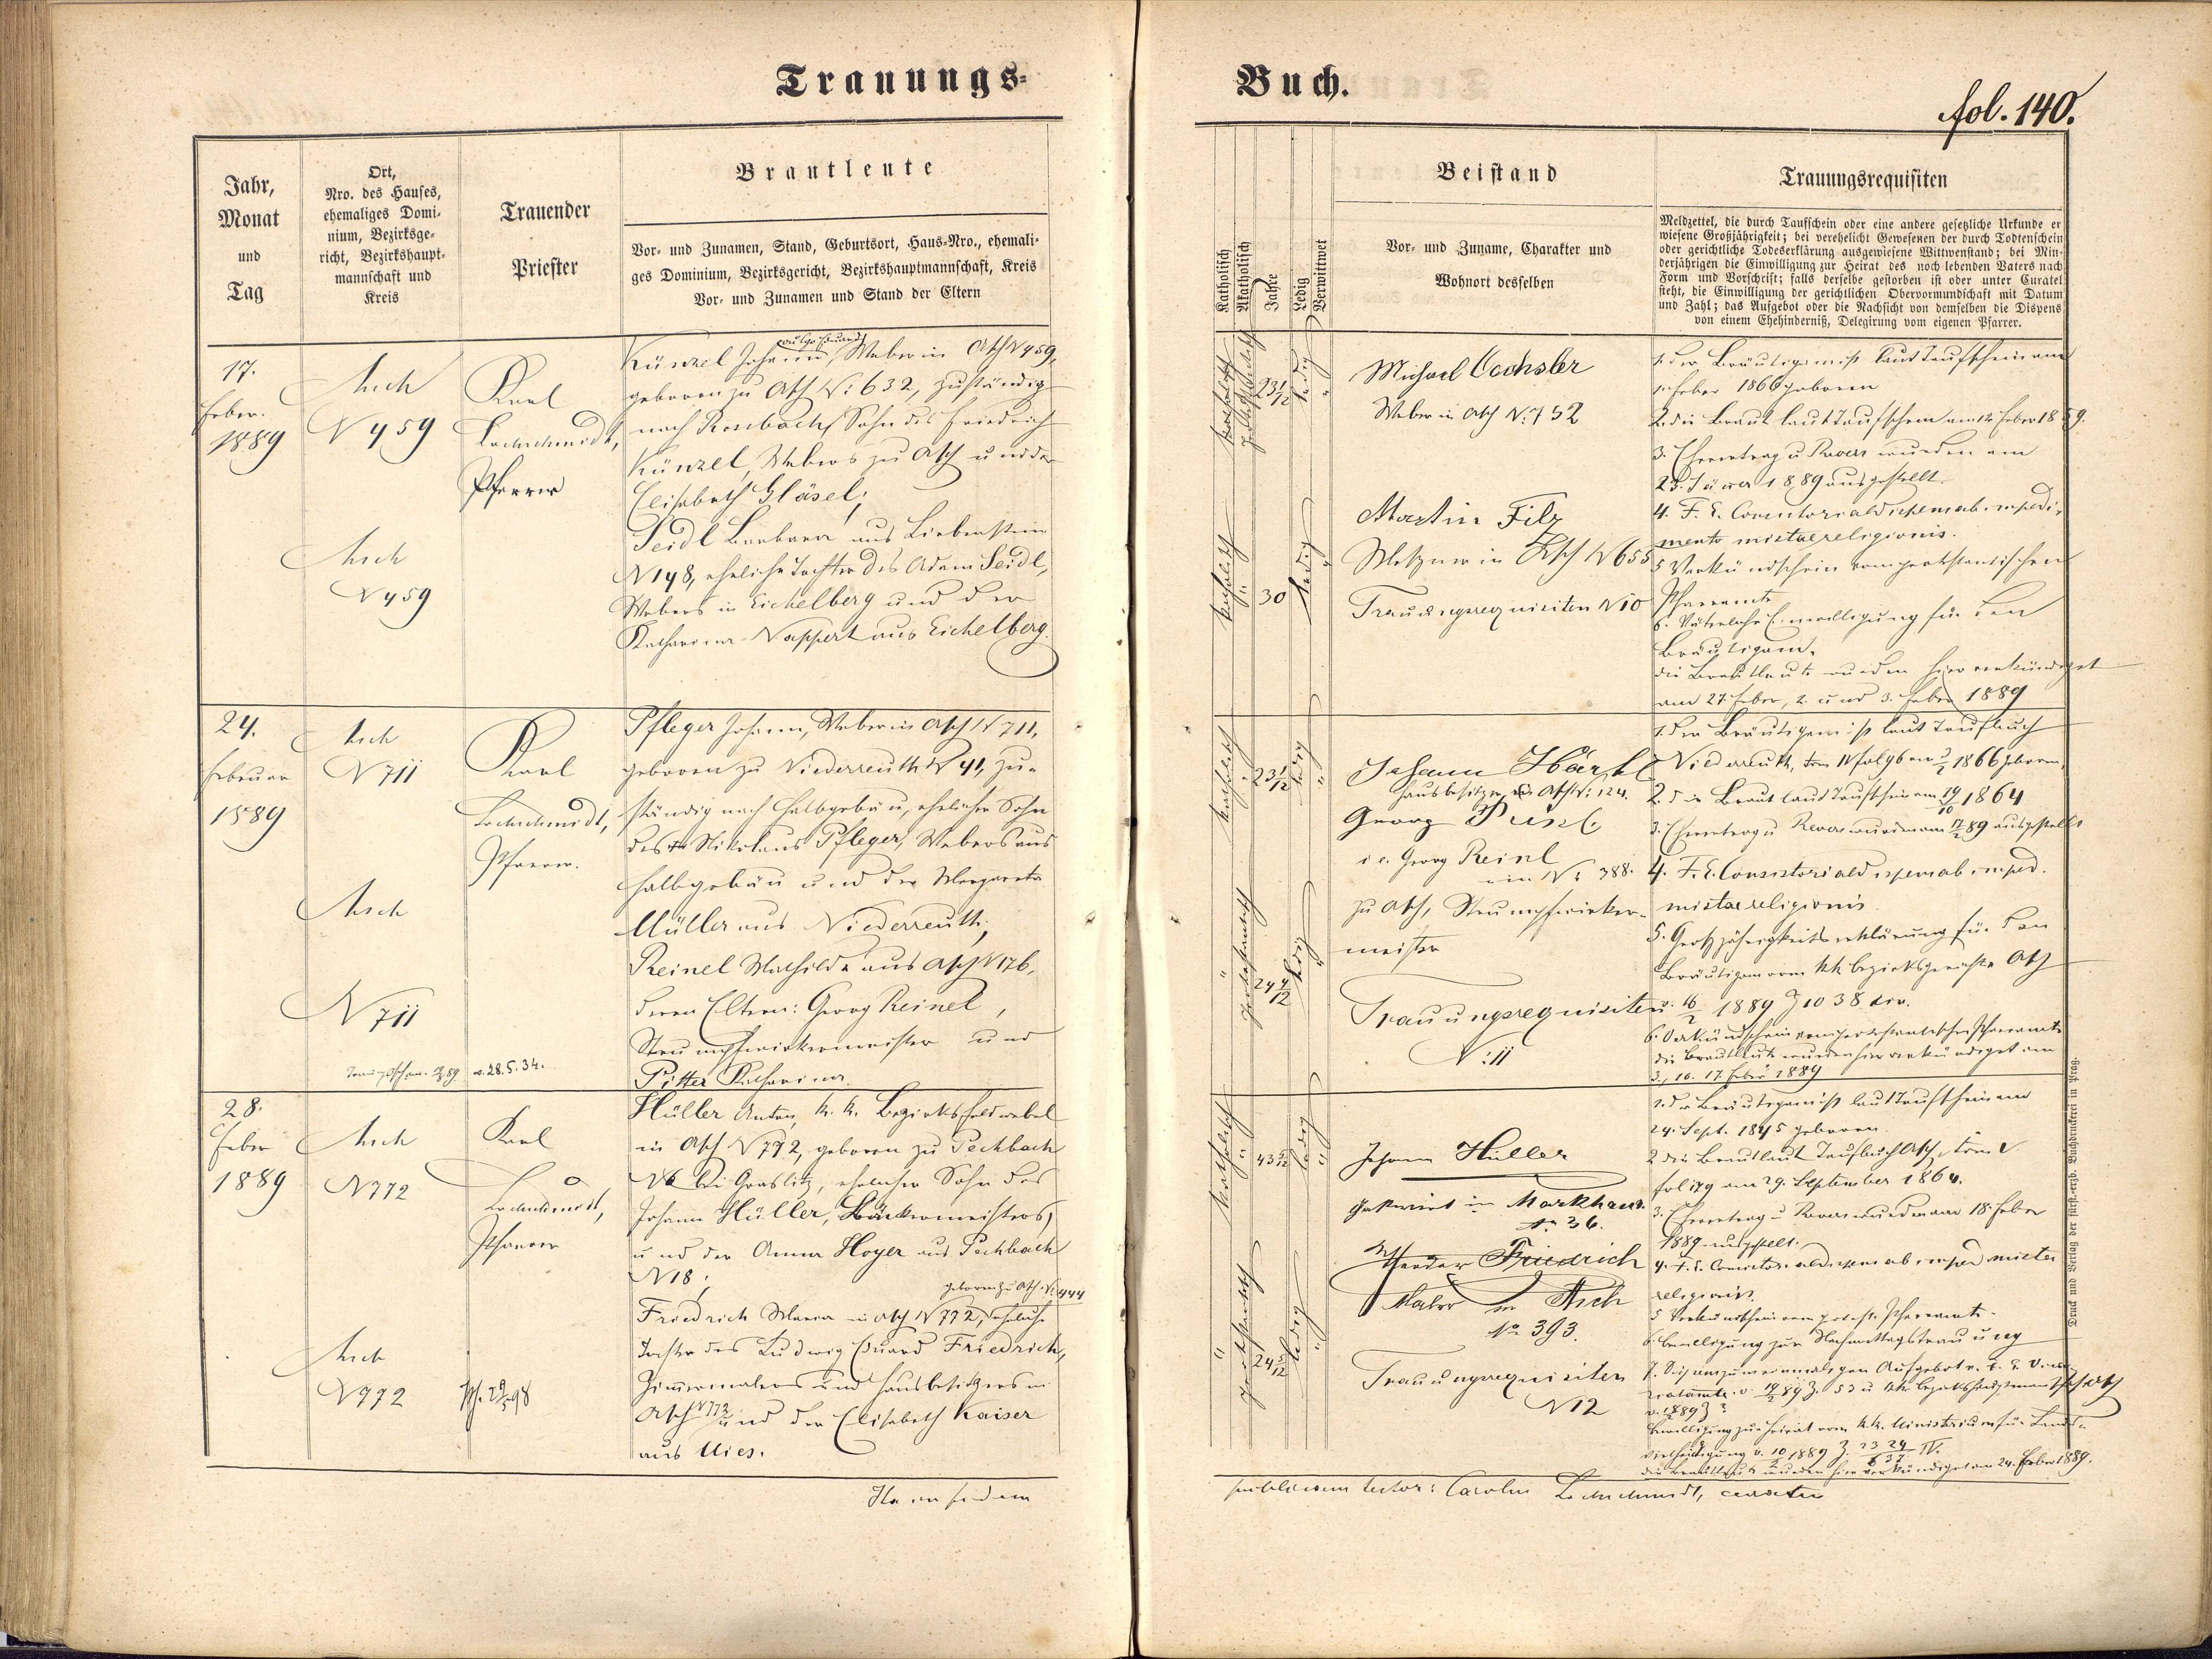 Trauungs-
Buch.
fol. 140.
Jahr,
Monat
und
Tag
Ort,
Nro. des Hauses,
ehemaliges Domi-
nium, Bezirksge-
richt, Bezirkshaupt-
mannschaft und
Kreis
Trauender
Priester
Brautleute
Vor- und Zunamen, Stand, Geburtsort, Haus-Nro., ehemali-
ges Dominium, Bezirksgericht, Bezirkshauptmannschaft, Kreis
Vor- und Zunamen und Stand der Eltern
Katholisch
Akatholisch
Jahre
Ledig
Verwittwet
Beistand
Vor- und Zuname, Charakter und
Wohnort desselben
Trauungsrequisiten
Meldzettel, die durch Taufschein oder eine andere gesetzliche Urkunde er
wiesene Großjährigkeit; bei verehelicht Gewesenen der durch Todtenschein
oder gerichtliche Todeserklärung ausgewiesene Wittwenstand; bei Min-
derjährigen die Einwilligung zur Heirat des noch lebenden Vaters nach
Form und Vorschrift; falls derselbe gestorben ist oder unter Curatel
steht, die Einwilligung der gerichtlichen Obervormundschaft mit Datum
und Zahl; das Aufgebot oder die Nachsicht von demselben die Dispens
von einem Ehehinderniß, Delegirung vom eigenen Pfarrer.
17.
Feber.
1889
Asch
N 459
Asch
N 459
Karl
Lochschmidt,
Pfarrer
Künzel Johann, Weber in Asch N 459,
geboren zu Asch N: 632, zuständig
nach Rossbach, Sohn des Friedrich
Künzel, Webers zu Asch und der
Elisabeth Gläsel;
Seidl Barbara aus Liebenstein
N 148, eheliche Tochter des Adam Seidl,
Webers in Eichelberg und der
Katharina Nappert aus Eichelberg.
katholisch
23 1/12
ledig
katholisch
30
ledig
Michael
Weber in Asch N: 752
Martin Filz
Metzner in Asch N 655
Trauungsrequisiten N 10
1. Der Bräutigam ist laut Taufschein am
1. Feber 1866 geboren
2. die Braut laut Taufschein am 12. Feber 1859.
3. Ehevertrag u Revers wurden am
23. Jänner 1889 ausgestellt.
4. F. E. Consistorialdispens ab impedi-
mento mixtae religionis.
5 Verkündschein vom protestantischen
Pfarramte
6. Väterliche Einwilligung für den
Bräutigam.
die Brautleute wurden hier verkündiget
am 27. Feber, 2. und 3. Feber 1889
24.
Februar
1889
Asch
N 711
Asch
N 711
28.5.34.
Karl
Lochschmidt,
Pfarrer.
Pfleger Johann, Weber in Asch N 711,
geboren zu Niederreuth N 41, zu-
ständig nach Halbgebäu, ehelicher Sohn
des Nikolaus Pfleger, Webers aus
Halbgebäu und der Margareta
Müller aus Niederreuth;
Reinel Mathilde aus Asch N 176,
deren Eltern: Georg Reinel,
Strumpfwirkermeister und
Pitter Katharina.
katholisch
23 1/12
ledig
protestantisch
24 4/12
ledig
Johann
Hausbesitzer in Asch N: 124.
Georg
i. e. Georg Reinl
N: 388.
zu Asch, Strumpfwirker-
meister
Trauungsrequisiten
N: 11
1. Der Bräutigam ist laut Taufbuch
Niederreuth, tom IV fol 96 1866 geboren,
2. die Braut laut Taufschein am 19/10 1864
3. Ehevertrag u Revers wurden am 89 ausgestellt
4. F. E. Consistorialdispens ab imped.
mixtae religionis
5. Großjährigkeitserklärung für den
Bräutigam vom kk Bezirksgerichte Asch
v. 16/2 1889 Z 1038 div.
6. Verkündschein vom protestantischen Pfarramte
die Brautleute wurden hier verkündiget am
3., 10. 17. Feber 1889
28.
Feber
1889
Asch
N 772
Asch
N 772
Karl
Lochschmidt,
Pfarrer
Hüller Anton, k. k. Bezirksfeldwebel
in Asch N 772, geboren zu Pechbach
N 6 bei Graslitz, ehelicher Sohn des
Johann Hüller, Bäckermeisters,
und der Anna Hoyer aus Pechbach
N 18;
geboren zu Asch N: 444
Friedrich Maria in Asch N 772, eheliche
Tochter des Ludwig Eduard Friedrich,
Zimmermalers und Hausbesitzers in
Asch N 772 und der Elisabeth Kaiser
aus Mies.
katholisch
43 5/12
ledig
protestantisch
24 5/12
ledig
Johann Hüller
Gastwirt in Markhausen
No 36.
Theodor Friedrich
Maler in Asch
No 393.
Trauungsrequisiten
N 12
1. Der Bräutigam ist laut Taufschein am
24. Sept. 1845 geboren.
2 die Braut laut Taufbuch Asch, tom V
am 29. September 1864.
3. Ehevertrag u Revers wurden am 18. Feber
1889 ausgestellt.
4. F. E. Consistorialdispens ab imped mixtae
religionis.
5 Verkündschein vom protest. Pfarramte.
6. Bewilligung zur Nachmittagstrauung
Bewilligung zur Heirat vom k. k. Ministerium für Landes-
vertheidigung v. 10/2 1889 Z
die Brautleute wurden hier verkündiget am 24. Feber 1889.
Ita in fidem
publicam testor: Carolus Lochschmidt, curatus
Druck und Verlag der fürst.-erzb. Buchdruckerei in Prag.